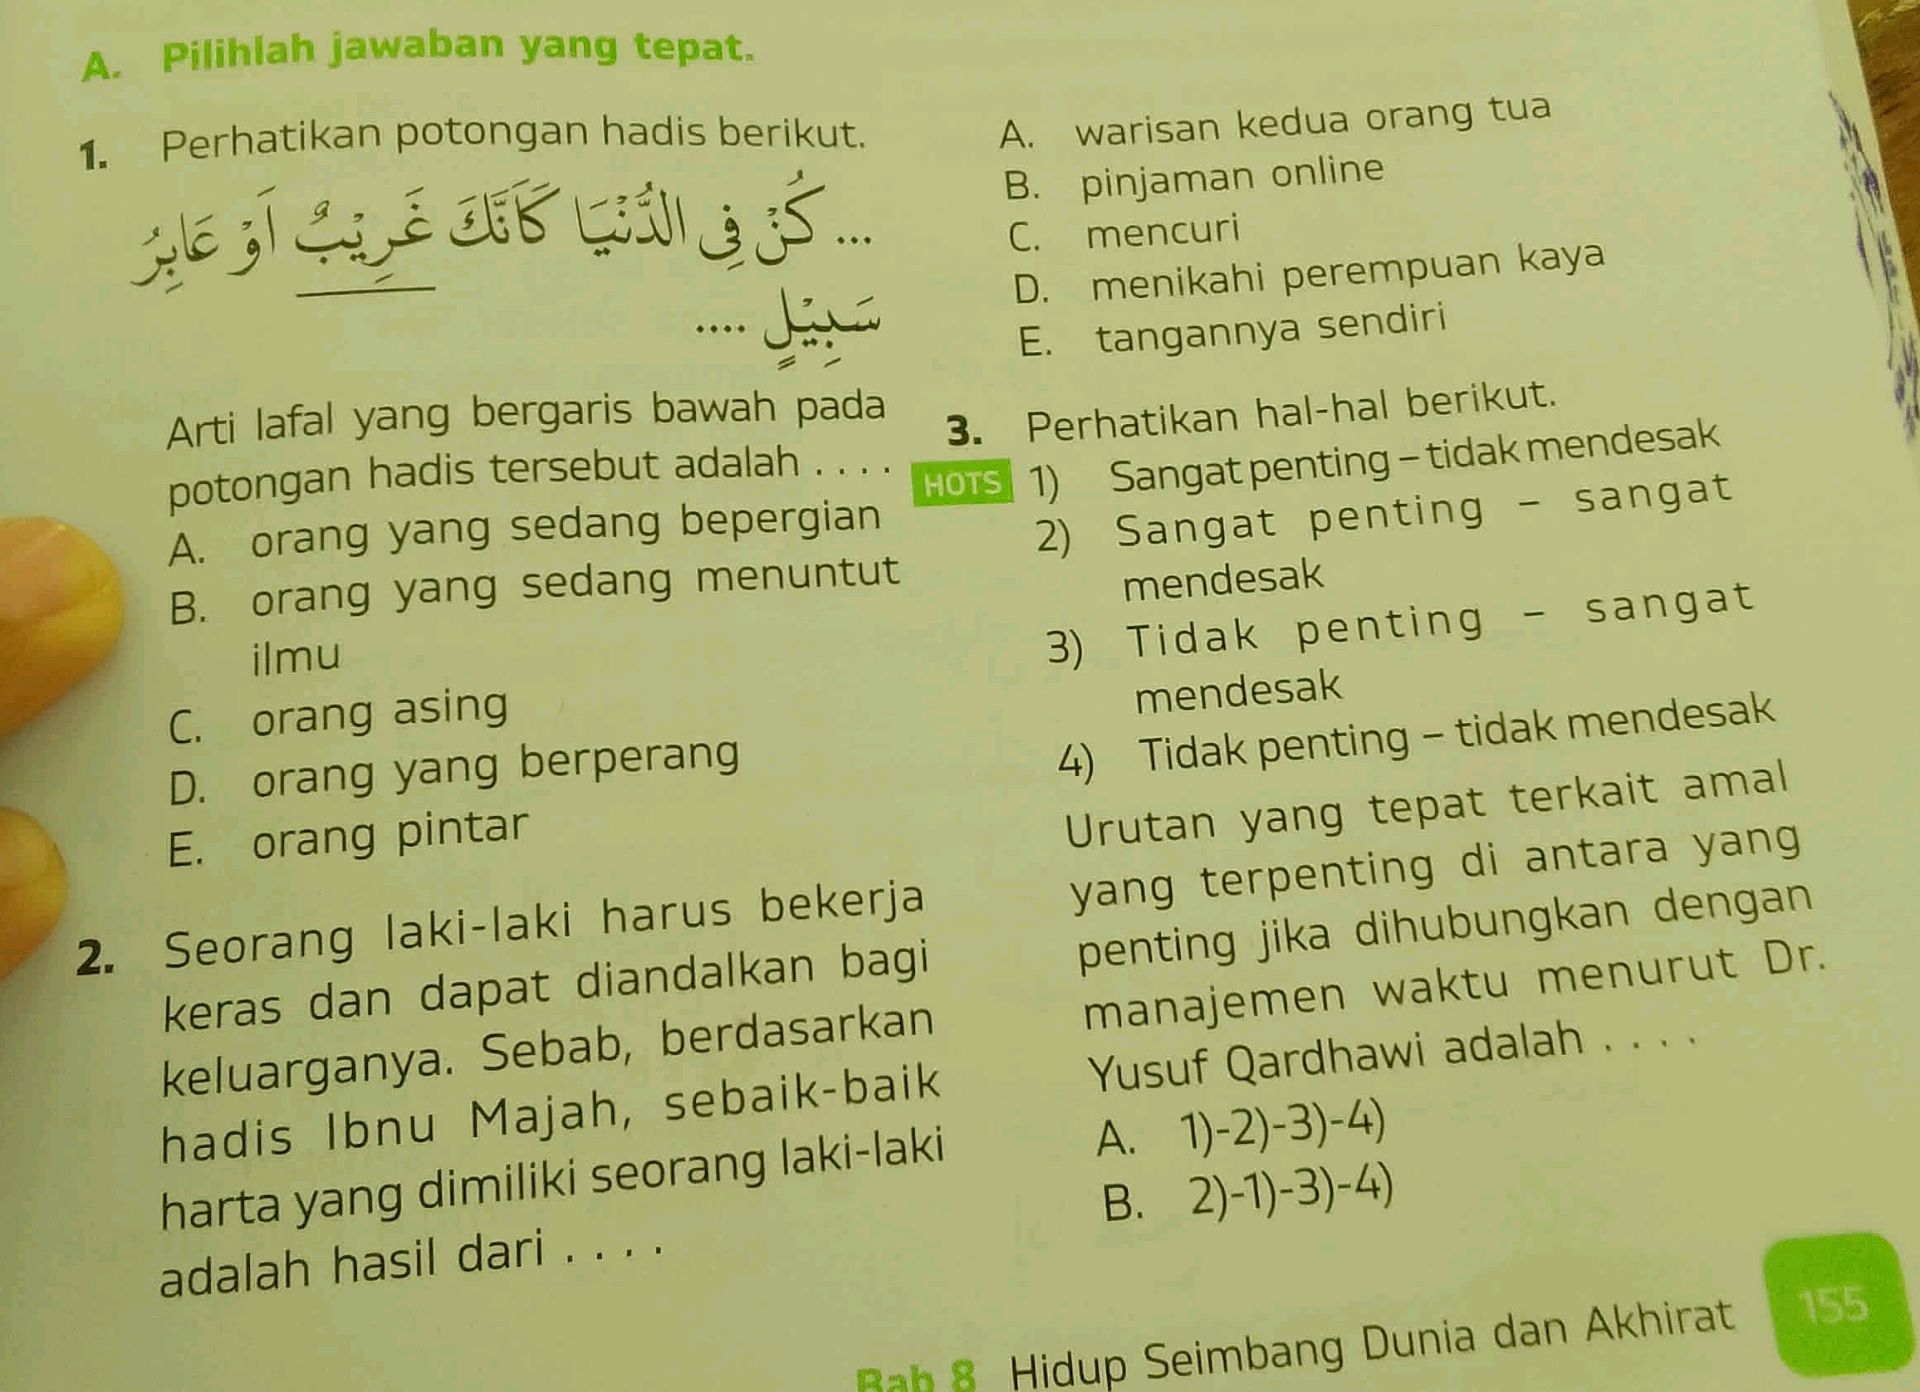 A. Pilihlah jawaban yang tepat.
1. Perhatikan potongan hadis berikut.
... كُنْ فِى الدُّنْيَا كَاَنَّكَ غَرِيْبٌ اَوْ عَابِرُ
سَبِيْلٍ ....
Arti lafal yang bergaris bawah pada
potongan hadis tersebut adalah . . . .
A. orang yang sedang bepergian
B. orang yang sedang menuntut
ilmu
C. orang asing
D. orang yang berperang
E. orang pintar
2. Seorang laki-laki harus bekerja
keras dan dapat diandalkan bagi
keluarganya. Sebab, berdasarkan
hadis Ibnu Majah, sebaik-baik
harta yang dimiliki seorang laki-laki
adalah hasil dari . . . .
A. warisan kedua orang tua
B. pinjaman online
C. mencuri
D. menikahi perempuan kaya
E. tangannya sendiri
3. Perhatikan hal-hal berikut.
HOTS 1) Sangat penting – tidak mendesak
2) Sangat penting – sangat
mendesak
3) Tidak penting – sangat
mendesak
4) Tidak penting – tidak mendesak
Urutan yang tepat terkait amal
yang terpenting di antara yang
penting jika dihubungkan dengan
manajemen waktu menurut Dr.
Yusuf Qardhawi adalah . . . .
A. 1)-2)-3)-4)
B. 2)-1)-3)-4)
Bab 8 Hidup Seimbang Dunia dan Akhirat 155